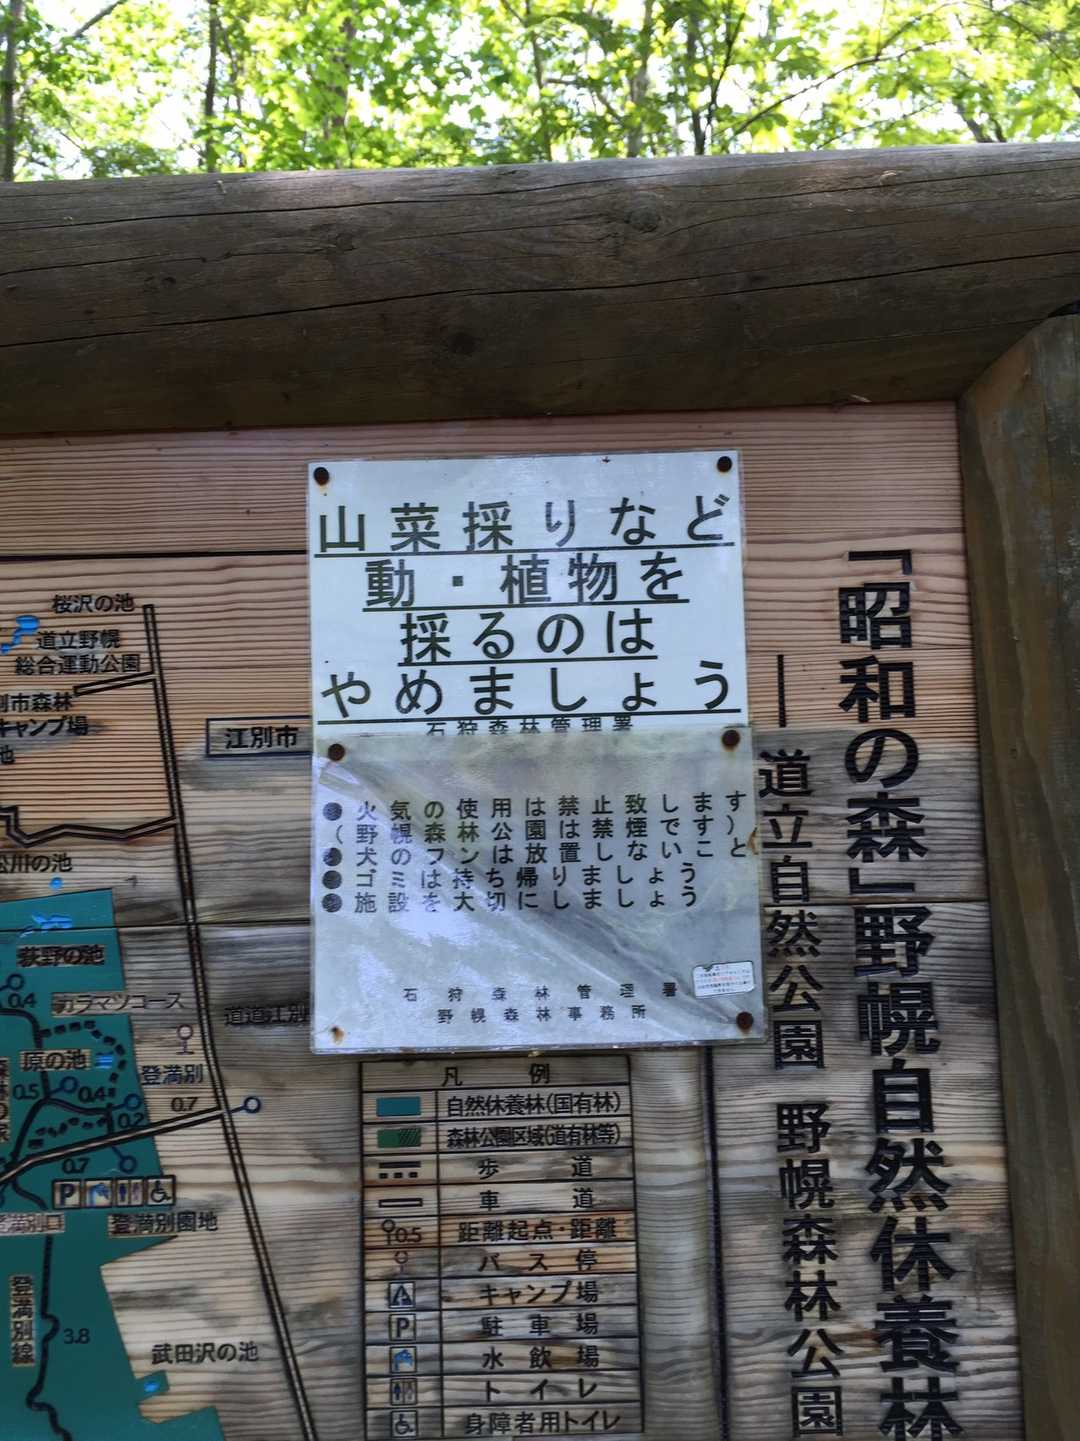 山菜採りなど
動・植物を
採るのは
やめましょう
石狩森林管理署
●火気の使用は禁止致します
(野幌の森林公園は禁煙です)
●犬のフンは放置しないこと
●ゴミは持ち帰りましょう
●施設を大切にしましょう
石狩森林管理署
野幌森林事務所
「昭和の森」野幌自然休養林
―道立自然公園 野幌森林公園
桜沢の池
道立野幌
総合運動公園
別市森林
キャンプ場
池
江別市
松川の池
萩野の池
0.4
カラマツコース
道道江別
原の池
登満別
0.5
0.4
0.2
0.7
0.7
P
登満別口
登満別園地
登満別線
3.8
武田沢の池
凡例
自然休養林(国有林)
森林公園区域(道有林等)
歩道
車道
0.5 距離起点・距離
バス停
キャンプ場
P 駐車場
水飲場
トイレ
身障者用トイレ